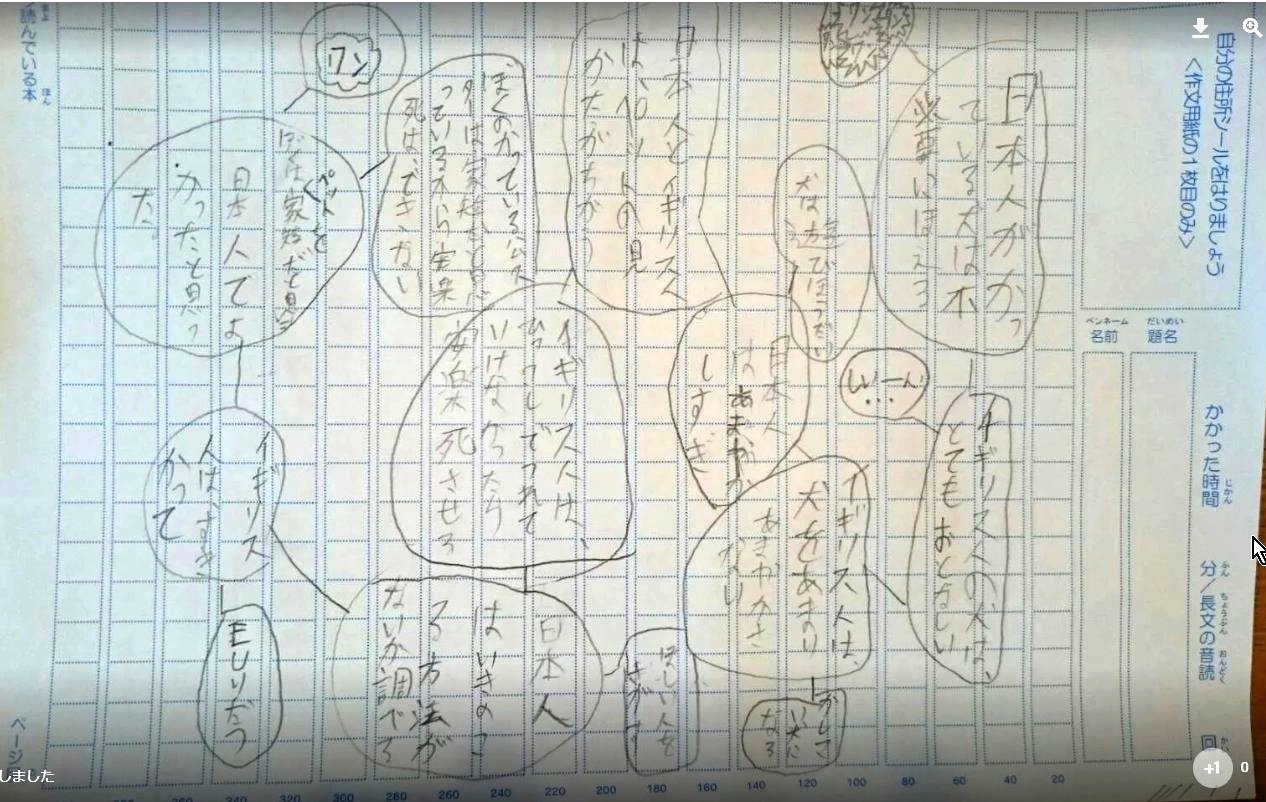 自分の住所シールをはりましょう
<作文用紙の1枚目のみ>
だいめい
題名
ペンネーム
名前
かかった時間
じかん
分/長文の音読
ふん
ちょうぶん
おんどく
回
かい
日本人がかっ
ている犬は不
必要にほえる
イギリス人の犬は、
とてもおとなしい
しいーん
...
な遊びほうだい
日本人
はあまやか
しすぎ
イギリス人は、
犬をあまり
あまやかさ
ない
かして
い犬に
なる
日本人とイギリス人
は、ペットの見
かたがちがう
イギリス人は、
ひっこしでつれて
いけなかったら
安楽死させる
ほしい人を
さがす
日本人
はいきのこ
る方法が
ないか調べる
ぼくのかっているハムス
ターは家族だと思
っているから安楽
死は、できない
ワン
ペットを
ぼくは家族だと思う
く
日本人でよ
かったと思っ
た。
イギリス
人は、すぐ
かって
モリだう
読んでいる本
よ
ほん
ページ
20
40
60
80
100
120
140
160
180
200
220
240
260
280
300
320
340
360
しました
+1
0